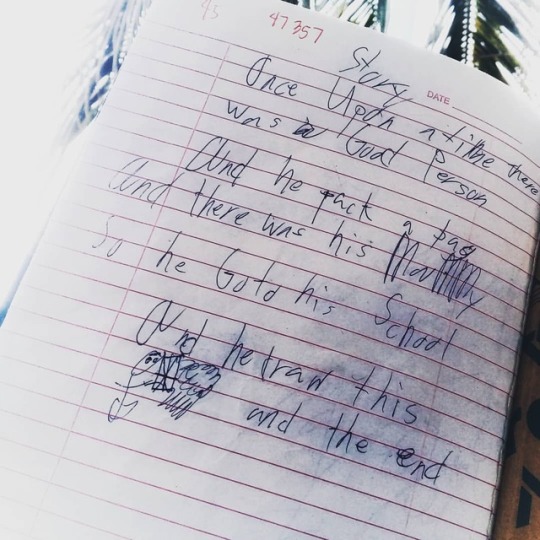 45
47357
Story
DATE
Once Upon a time there
was a Good Person
And he pack a bag
And there was his
So he Goto his School
And he draw this
and the end